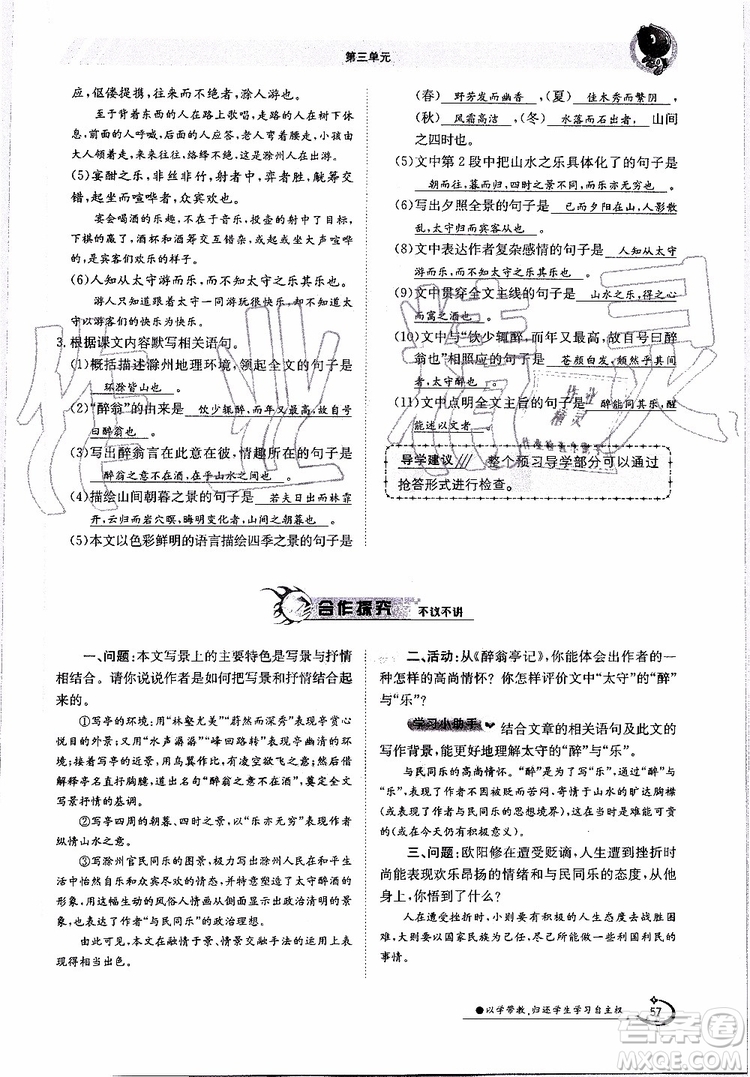 第三单元
应，伛偻提携，往来而不绝者，滁人游也。
至于背着东西的人在路上歌唱，走路的人在树下休
息，前面的人呼喊，后面的人应答，老人弯着腰走，小孩由
大人领着走，来来往往，络绎不绝，这是滁州人们在出游。
(5)宴酣之乐，非丝非竹，射者中，弈者胜，觥筹交
错，起坐而喧哗者，众宾欢也。
宴会喝酒的乐趣，不在于音乐，投壶的射中了目标，
下棋的赢了，酒杯和酒筹交互错杂，或起或坐大声喧哗
的，是宾客们欢乐的样子。
(6)人知从太守游而乐，而不知太守之乐其乐也。
游人只知道跟着太守游玩的快乐，却不知道太守
太守以游客的快乐为快乐。
3. 根据课文内容默写相关语句。
(1)概括描述滁州地理环境，领起全文的句子是
环滁皆山也。
(2)“醉翁”的由来是 饮少辄醉，而年又最高，故自号
曰醉翁也 。
(3)写出醉翁言在此意在彼，情趣所在的句子是
醉翁之意不在酒，在乎山水之间也 。
(4)描绘山间朝暮之景的句子是 若夫日出而林霏
开，云归而岩穴暝，晦明变化者，山间之朝暮也 。
(5)本文以色彩鲜明的语言描绘四季之景的句子是
(春) 野芳发而幽香 ，(夏) 佳木秀而繁阴 ，
(秋) 风霜高洁 ，(冬) 水落而石出者 ，山间
之四时也。
(5)文中第2段中把山水之乐具体化了的句子是
朝而往，暮而归，四时之景不同，而乐亦无穷也 。
(6)写出夕照全景的句子是 已而夕阳在山，人影散
乱，太守归而宾客从也 。
(8)文中表达作者复杂感情的句子是 人知从太守
游而乐，而不知太守之乐其乐也 。
(9)文中贯穿全文主线的句子是 山水之乐，得之心
而寓之酒也 。
(10)文中与“饮少辄醉，而年又最高，故自号曰醉
翁也”相照应的句子是 苍颜白发，颓然乎其间
者，太守醉也 。
(11)文中点明全文主旨的句子是 醉能同其乐，醒
能述以文者 。
导学建议/// 整个预习导学部分可以通过
抢答形式进行检查。
合作探究 不议不讲
一、问题：本文写景上的主要特色是写景与抒情
相结合。请你说说作者是如何把写景和抒情结合起
来的。
①写亭的环境：用“林壑尤美”“蔚然而深秀”表现亭赏心
悦目的外景；又用“水声潺潺”“峰回路转”表现亭幽清的环
境；接着写亭的近景，用鸟翼作比，有凌空欲飞之意；然后借
解释亭名直抒胸臆，道出名句“醉翁之意不在酒”，奠定全文
写景抒情的基调。
②写亭四周的朝暮、四时之景，以“乐亦无穷”直抒作者
纵情山水之意。
③写滁州官民同乐的图景，极力突出滁人在和平生活
下怡然自乐和众宾尽欢的情态，特意突出了太守醉酒的形
象，用这幅生动的风俗人情画从侧面显示出政治清明的景
象，也表现了作者“与民同乐”的政治理想。
由此可见，本文在融情于景、情景交融手法的运用上表
现得相当出色。
二、活动：从《醉翁亭记》，你能体会出作者的一
种怎样的高尚情怀？你怎样评价文中“太守”的“醉”
与“乐”？
学习小助手 结合文章的相关语句及此文的
写作背景，能更好地理解太守的“醉”与“乐”。
与民同乐的高尚情怀。“醉”与“乐”是统一的，“醉”是表
象，因贬官而苦闷，寄情于山水的旷达胸襟(或作者与民同乐的思想境界)，
(或在今天仍有积极意义)。
三、问题：欧阳修在遭受贬谪，人生遭到挫折时
尚能表现欢乐昂扬的情绪和与民同乐的态度，从中
你悟到了什么？
人在遭受挫折时，小则要有积极的人生态度去战胜困
难，大则要以国家民族为念，尽己所能多做一些利国利民的
事情。
●以学带教，归还学生学习自主权
57
答案圈
MXQE.COM